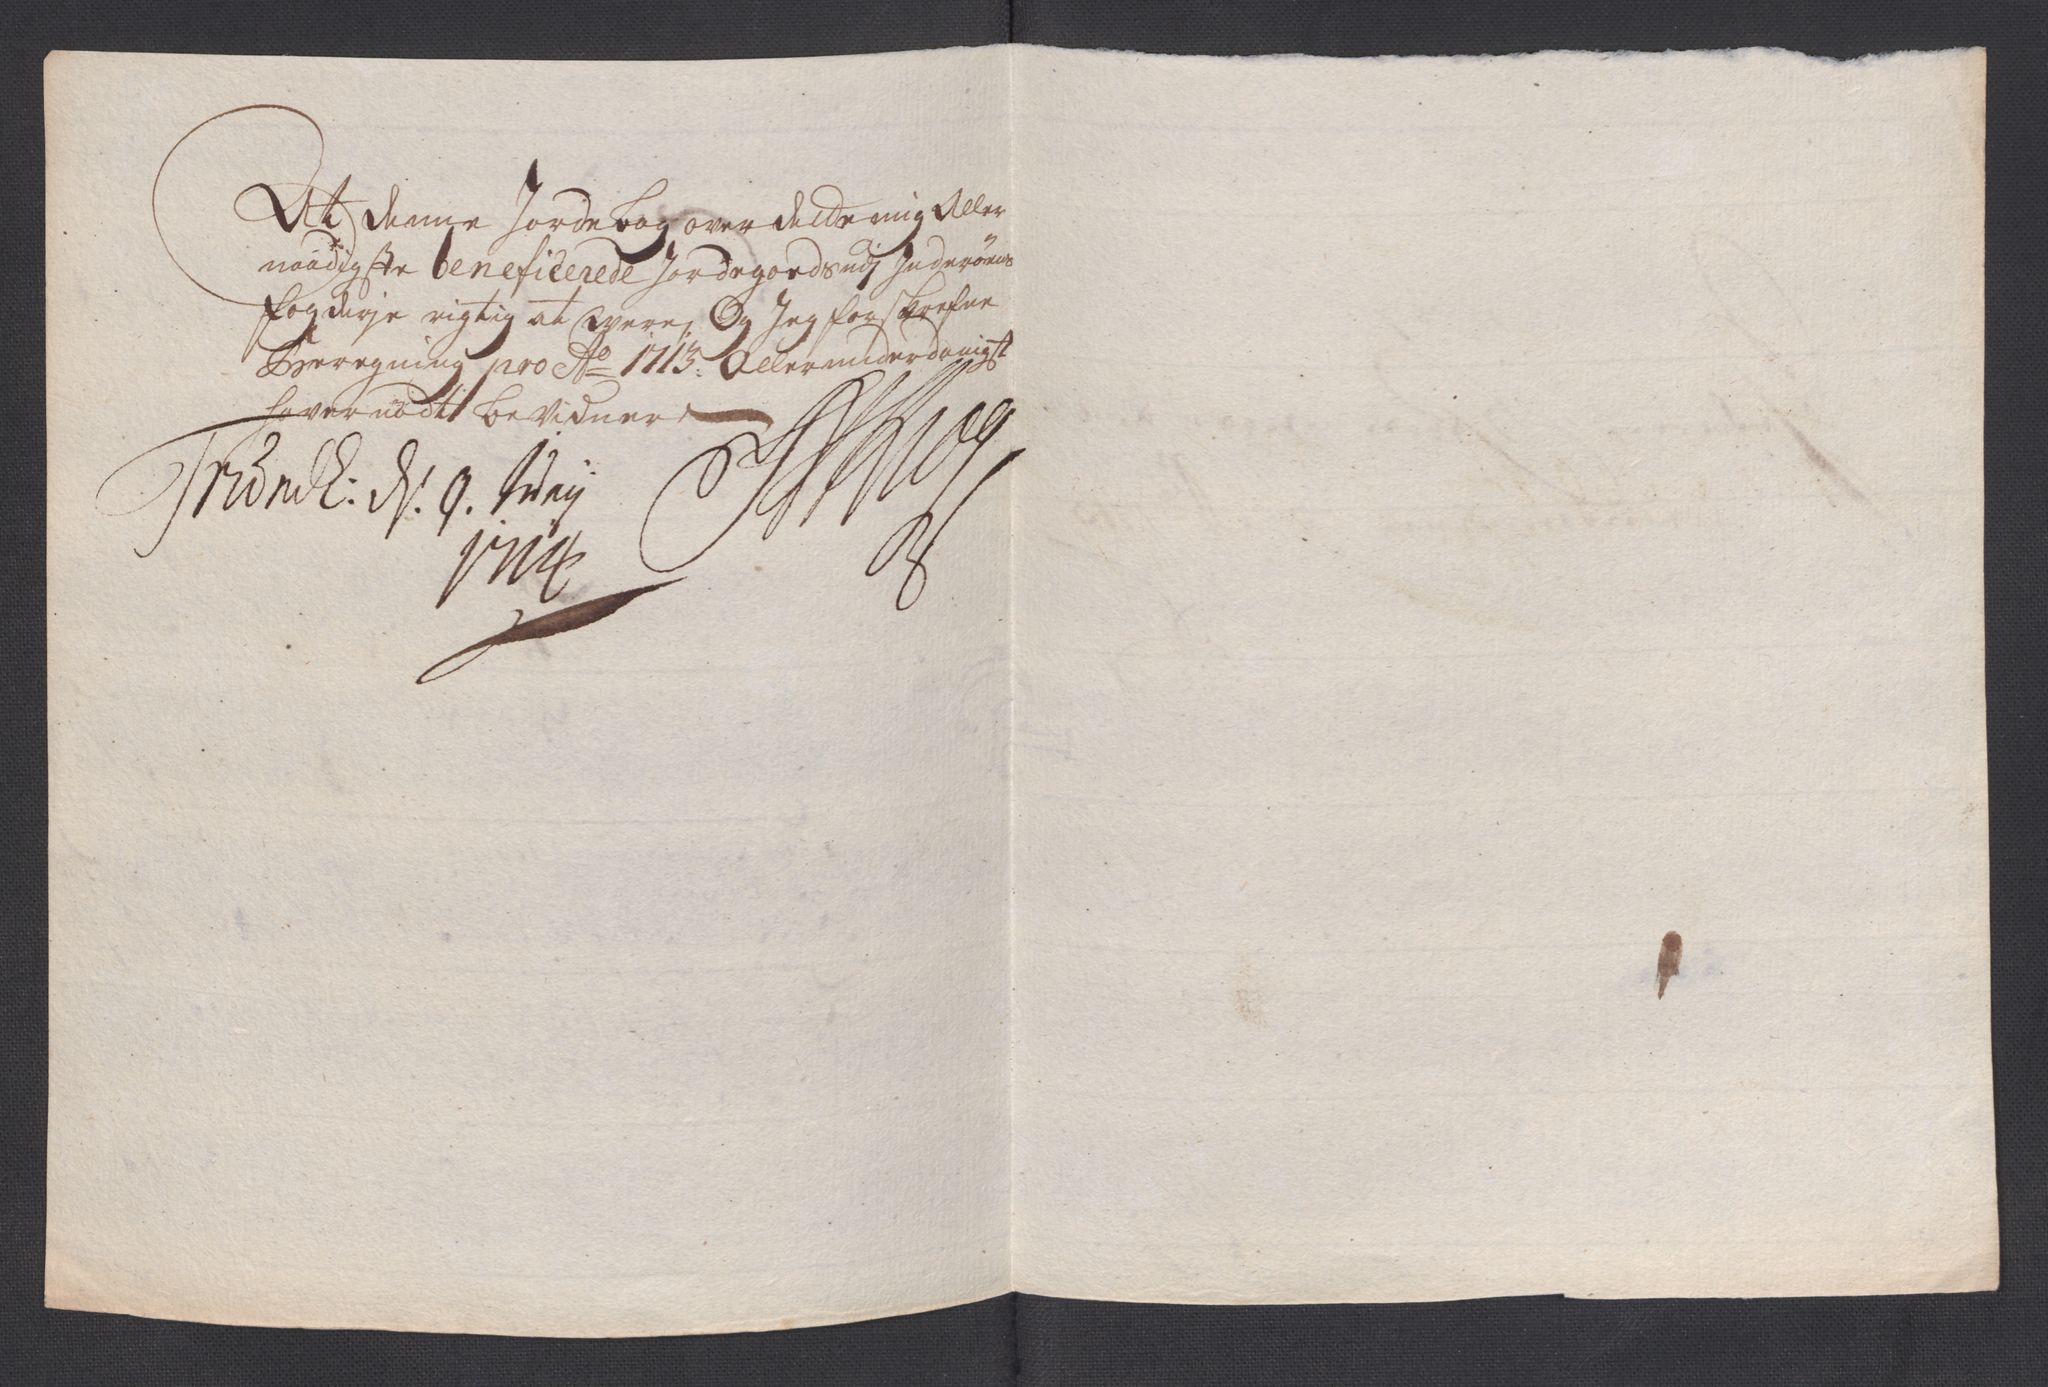 At denne Jordebog over dette mig Aller
naadigste beneficerede Jordegodsudj Inderøens
fogderje rigtig at were, Og Jeg forskrefne
Beregning pro Ao 1713. Allerunderdanigst
haver nødt bevidner
Trundh: d. 9. Maij
1714